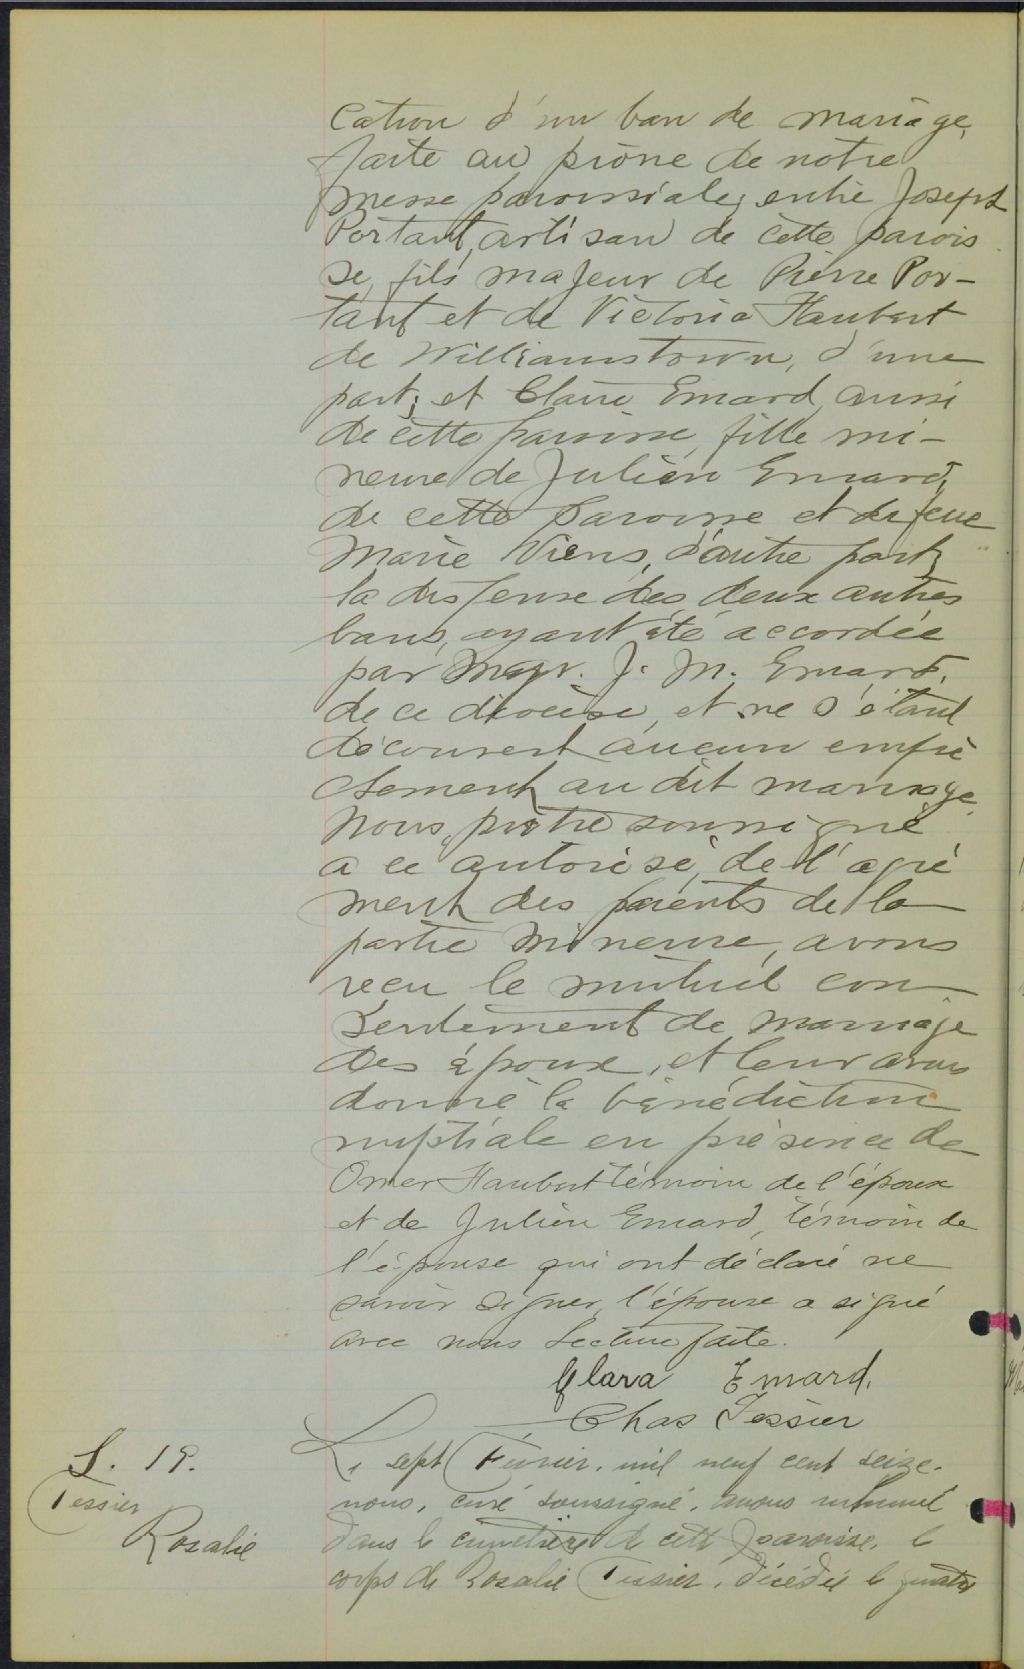 cation d'un ban de mariage,
faite au prône de notre
messe paroissiale, entre Joseph
Portant, artisan de cette parois
se, fils majeur de Pierre Por-
tant et de Victoria Haubert
de Williamstown, d'une
part; et Claire Emard, aussi
de cette paroisse, fille mi-
neure de Julien Emard,
de cette Paroisse et de feue
Marie Viens, d'autre part,
la dispense des deux autres
bans, ayant été accordée
par Mgr. J. M. Emard,
de ce diocèse, et ne s'étant
découvert aucun empê
chement au dit mariage
Nous, prêtre soussigné
a ce autorisé, de l'agré
ment des parents de la
partie mineure, avons
reçu le mutuel con
sentement de mariage
des époux, et leur avons
donné la bénédiction
nuptiale en présence de
Omer Haubert témoin de l'époux
et de Julien Emard, témoin de
l'épouse qui ont déclaré ne
savoir signer, l'épouse a signé
avec nous Lecture faite.
Clara Emard.
Chas Tessier
S. 19.
Tessier
Rosalie
Le sept Février, mil neuf cent seize,
nous, curé soussigné, avons inhumé
dans le cimetière de cette paroisse, le
corps de Rosalie Tessier, décédée le quatre